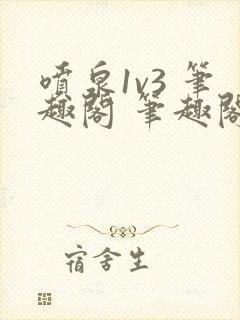 噴泉1v3 筆
趣閣 筆趣閣
宿舍生